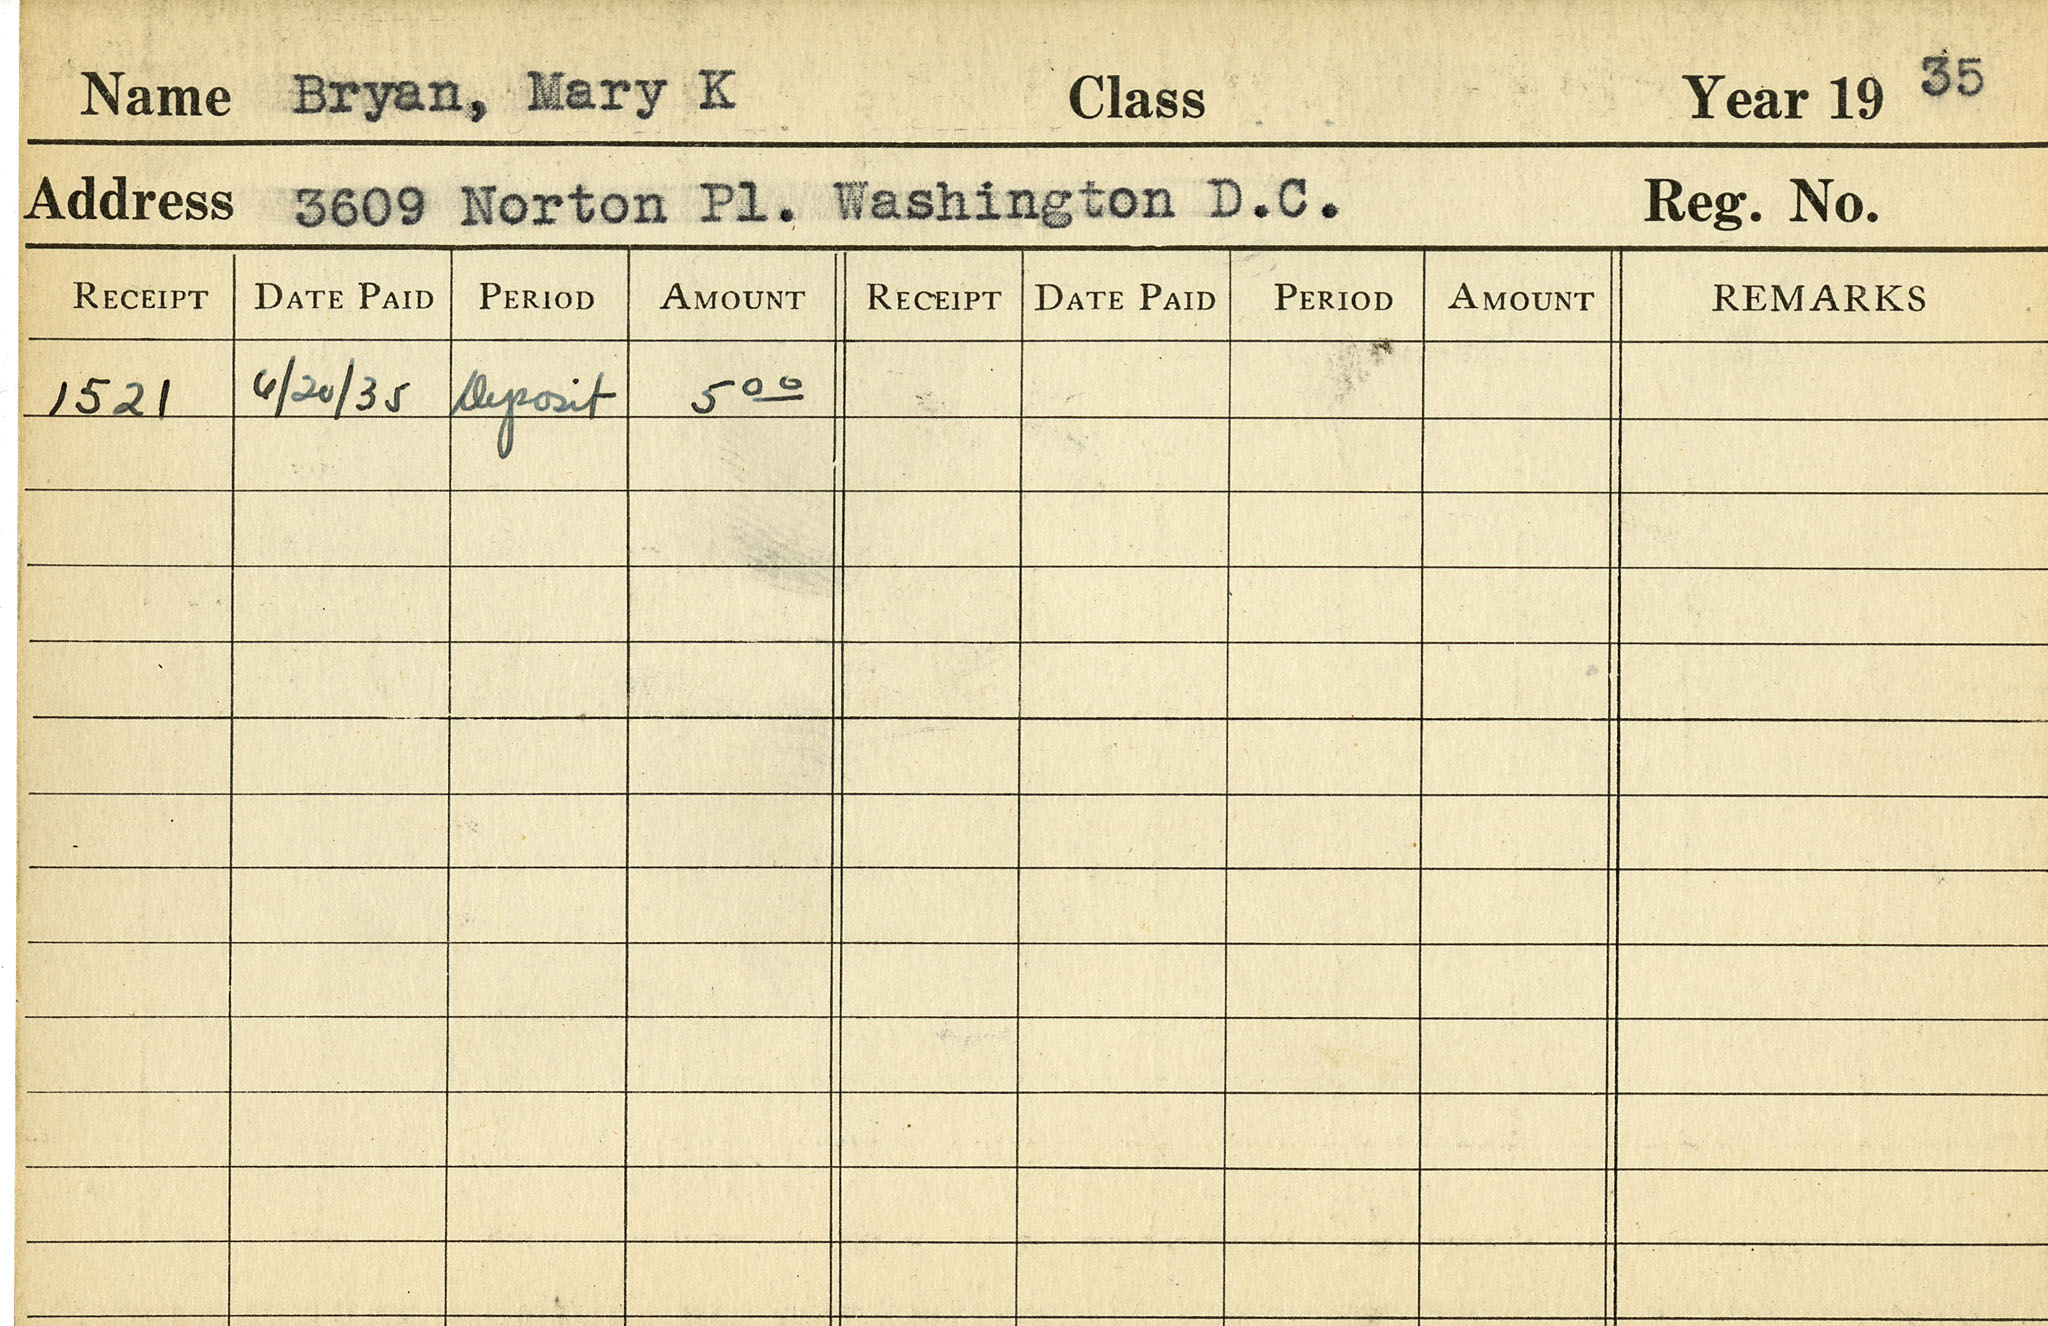 Name Bryan, Mary K Class Year 19 35
Address 3609 Norton Pl. Washington D.C. Reg. No.
RECEIPT DATE PAID PERIOD AMOUNT RECEIPT DATE PAID PERIOD AMOUNT REMARKS
1521 6/20/35 Deposit 5 00